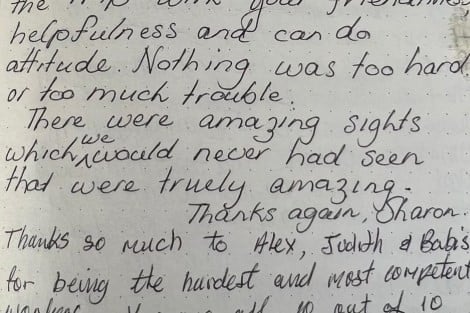 the trip with your friendliness
helpfulness and can do
attitude. Nothing was too hard
or too much trouble.
There were amazing sights
which we would never had seen
that were truely amazing.
Thanks again, Sharon.
Thanks so much to Alex, Judith & Babis
for being the hardest and most competent
out of 10